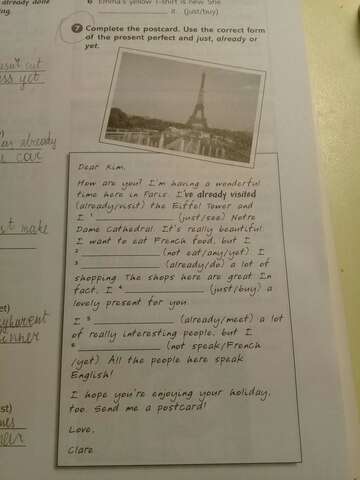 already done
6 Emma's yellow T-shirt is new. She
it. (just/buy)
7 Complete the postcard. Use the correct form
of the present perfect and just, already or
yet.
Dear Kim,
How are you? I'm having a wonderful
time here in Paris. I've already visited
(already/visit) the Eiffel Tower and
I 1 (just/see) Notre
Dame Cathedral. It's really beautiful.
I want to eat French food, but I
2 (not eat/any/yet). I
3 (already/do) a lot of
shopping. The shops here are great. In
fact, I 4 (just/buy) a
lovely present for you.
I 5 (already/meet) a lot
of really interesting people, but I
6 (not speak/French
/yet). All the people here speak
English!
I hope you're enjoying your holiday,
too. Send me a postcard!
Love,
Clare
yet
already
car
make